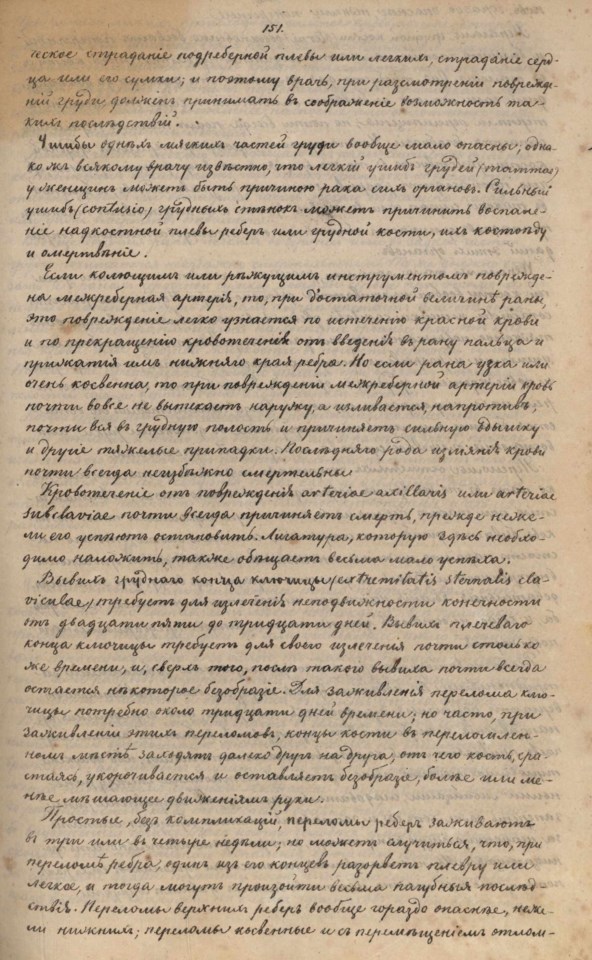 151.
ческое страданіе подреберной плевы или легкихъ, страданіе серд-
ца или его сумки; и поэтому врачъ, при разсмотреніи поврежде-
ній груди должен принимать въ соображеніе возможность та-
кихъ послѣдствій.
Ушибы однѣхъ мягкихъ частей груди вообще мало опасны; одна-
ко жъ всякому врачу извѣстно, что легкій ушибъ грудей (mammas)
у женщинъ можетъ быть причиною рака сихъ органовъ. Сильный
ушибъ (contusio) грудныхъ стѣнокъ можетъ причинить воспале-
ніе надкостной плевы реберъ или грудной кости, ихъ костоѣду
и омертвѣніе.
Если колющимъ или рѣжущимъ инструментомъ поврежде-
на межреберная артерія, то, при достаточной величинѣ раны,
это поврежденіе легко узнается по истеченію красной крови
и по прекращенію кровотеченія отъ введенія въ рану пальца и
прижатія имъ нижняго края ребра. Но если рана узка или
очень косвенна, то при поврежденіи межреберной артеріи кровь
почти вовсе не вытекаетъ наружу, а изливается, напротивъ,
почти вся въ грудную полость и причиняетъ сильную одышку
и другіе тяжелые припадки. Послѣдняго рода изліянія крови
почти всегда неизбѣжно смертельны
Кровотеченіе отъ поврежденія arteriae axillaris или arteriae
subclaviae почти всегда причиняетъ смерть, прежде неже-
ли его успѣютъ остановить. Лигатура, которую здѣсь необхо-
димо наложить, также обѣщаетъ весьма мало успѣха.
Вывихъ груднаго конца ключицы (extremitatis sternalis cla-
viculae) требуетъ для излеченія неподвижности конечности
отъ двадцати пяти до тридцати дней. Вывихъ плечеваго
конца ключицы требуетъ для своего излеченія почти столько
же времени, и, сверхъ того, послѣ такого вывиха почти всегда
остается нѣкоторое безобразіе. Для заживленія перелома клю-
чицы потребно около тридцати дней времени; но часто, при
заживленіи этихъ переломовъ, концы кости въ переломлен-
номъ мѣстѣ заходятъ далеко другъ на друга, отъ чего кость, сра-
стаясь, укорочивается и оставляетъ безобразіе, болѣе или ме-
нѣе мѣшающее движеніямъ руки.
Простые, безъ компликацій, переломы реберъ заживаютъ
въ три или въ четыре недѣли; но можетъ случиться, что, при
переломѣ ребра, одинъ изъ его концевъ разорветъ плевру или
легкое, и тогда могутъ произойти весьма пагубныя послѣд-
ствія. Переломы верхнихъ реберъ вообще гораздо опаснѣе, неже-
ли нижнихъ; переломы косвенные и съ перемѣщеніемъ отлом-